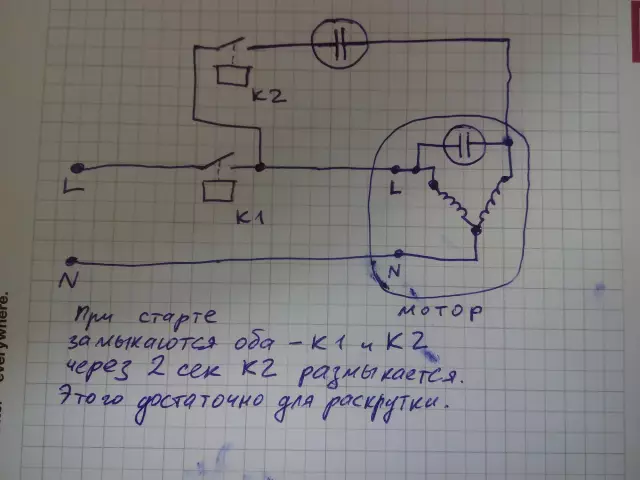 K2
L
K1
L
N
N
МОТОР
При старте
замыкаются оба – К1 и К2
через 2 сек К2 размыкается.
Этого достаточно для раскрутки.
everywhere.